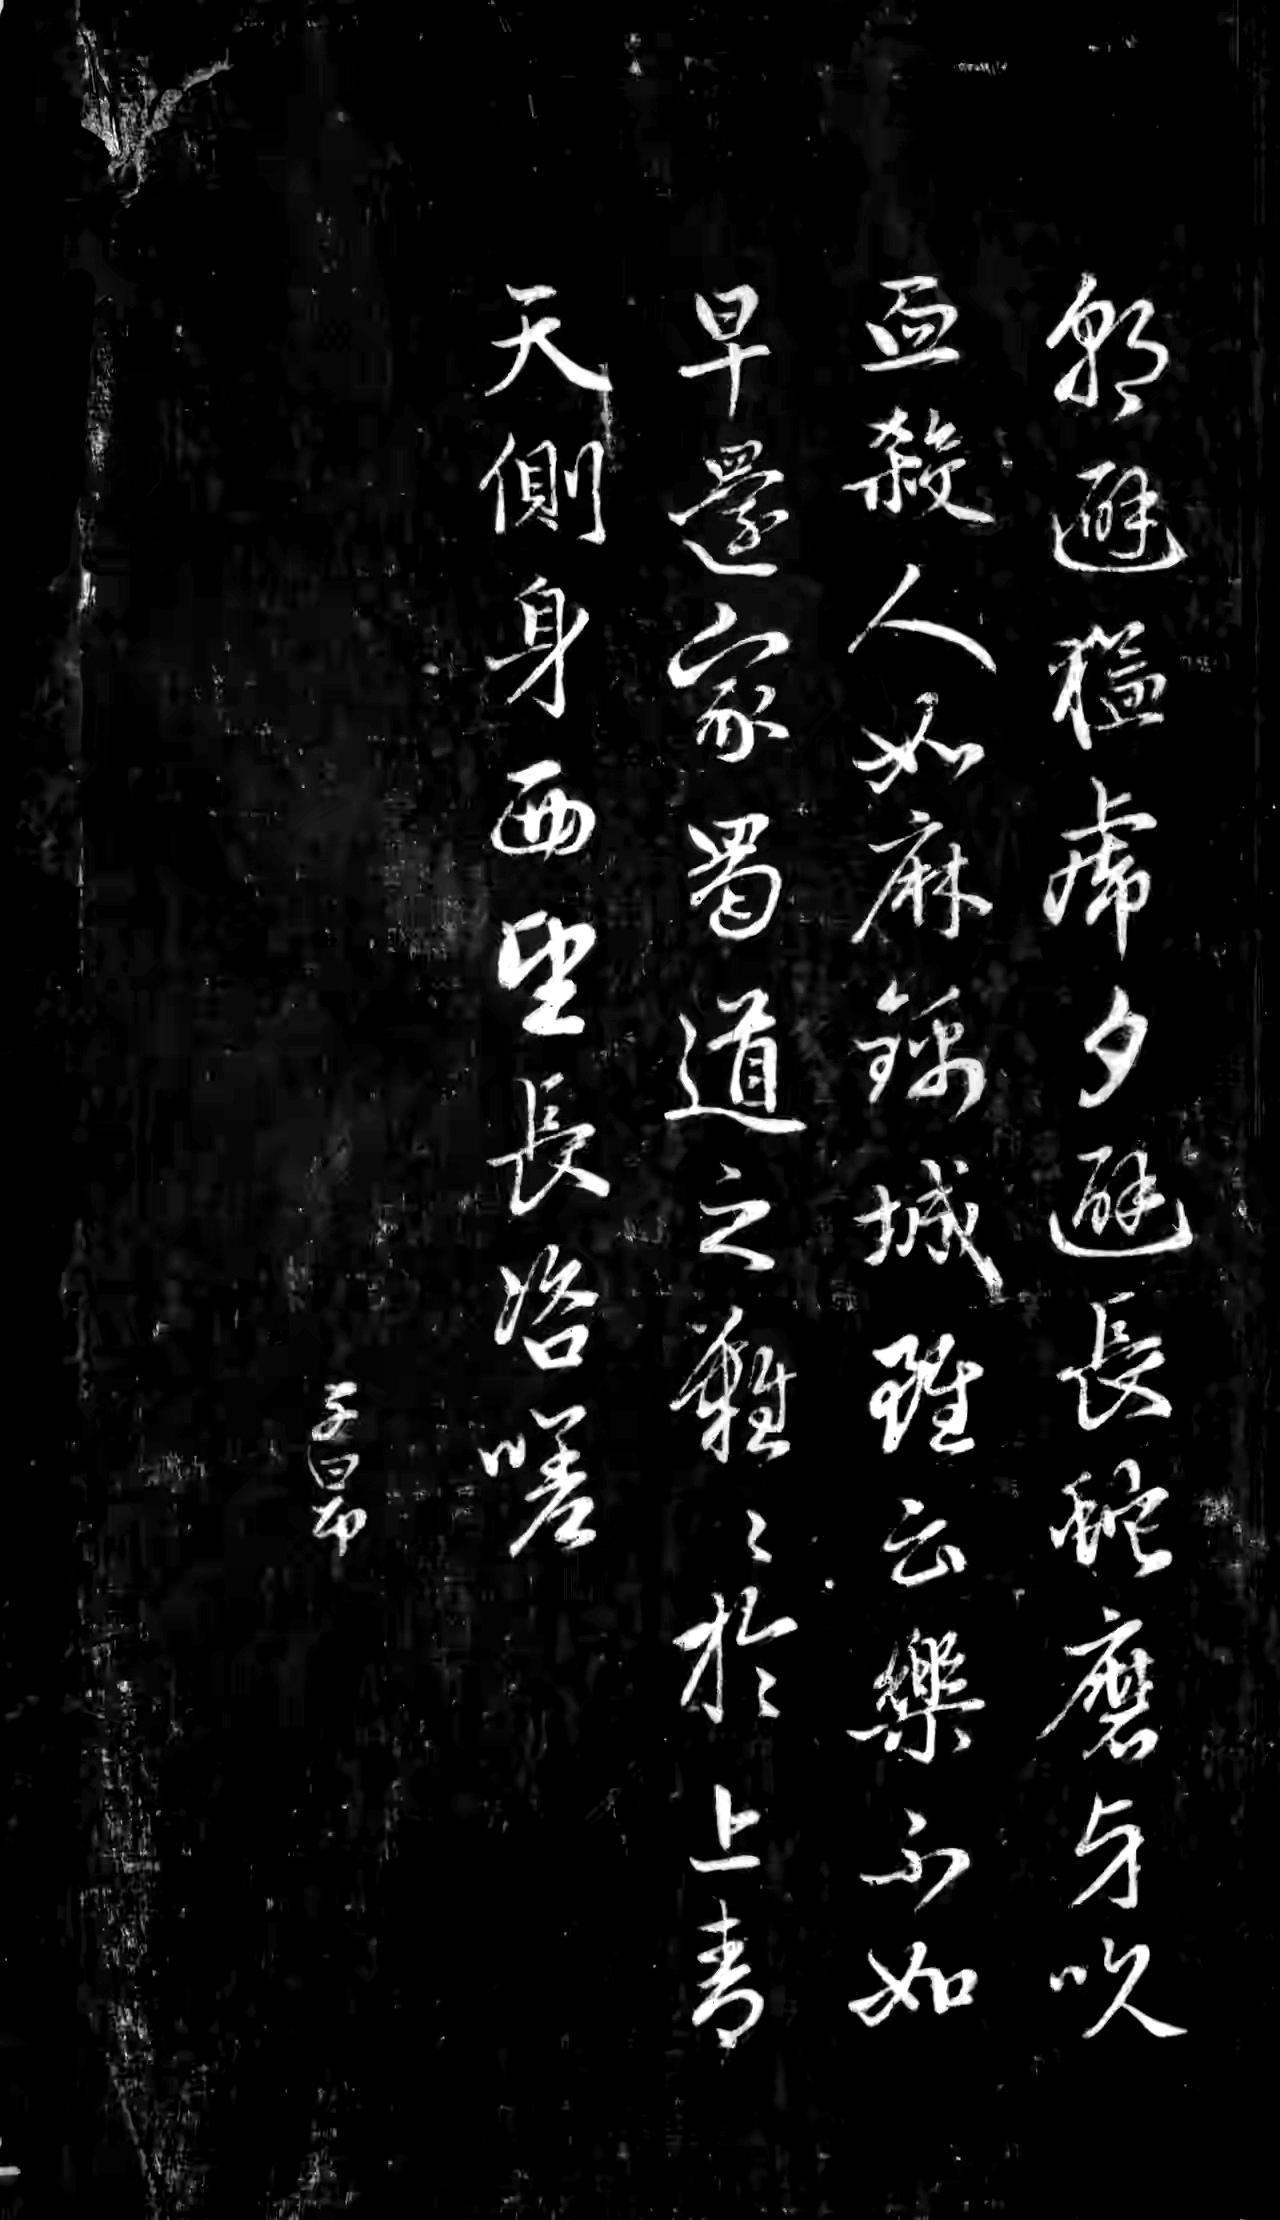 朝避猛虎夕避長蛇磨牙吮
血殺人如麻錦城雖云樂不如
早還家蜀道之難〻於上青
天側身西望長咨嗟
子昂